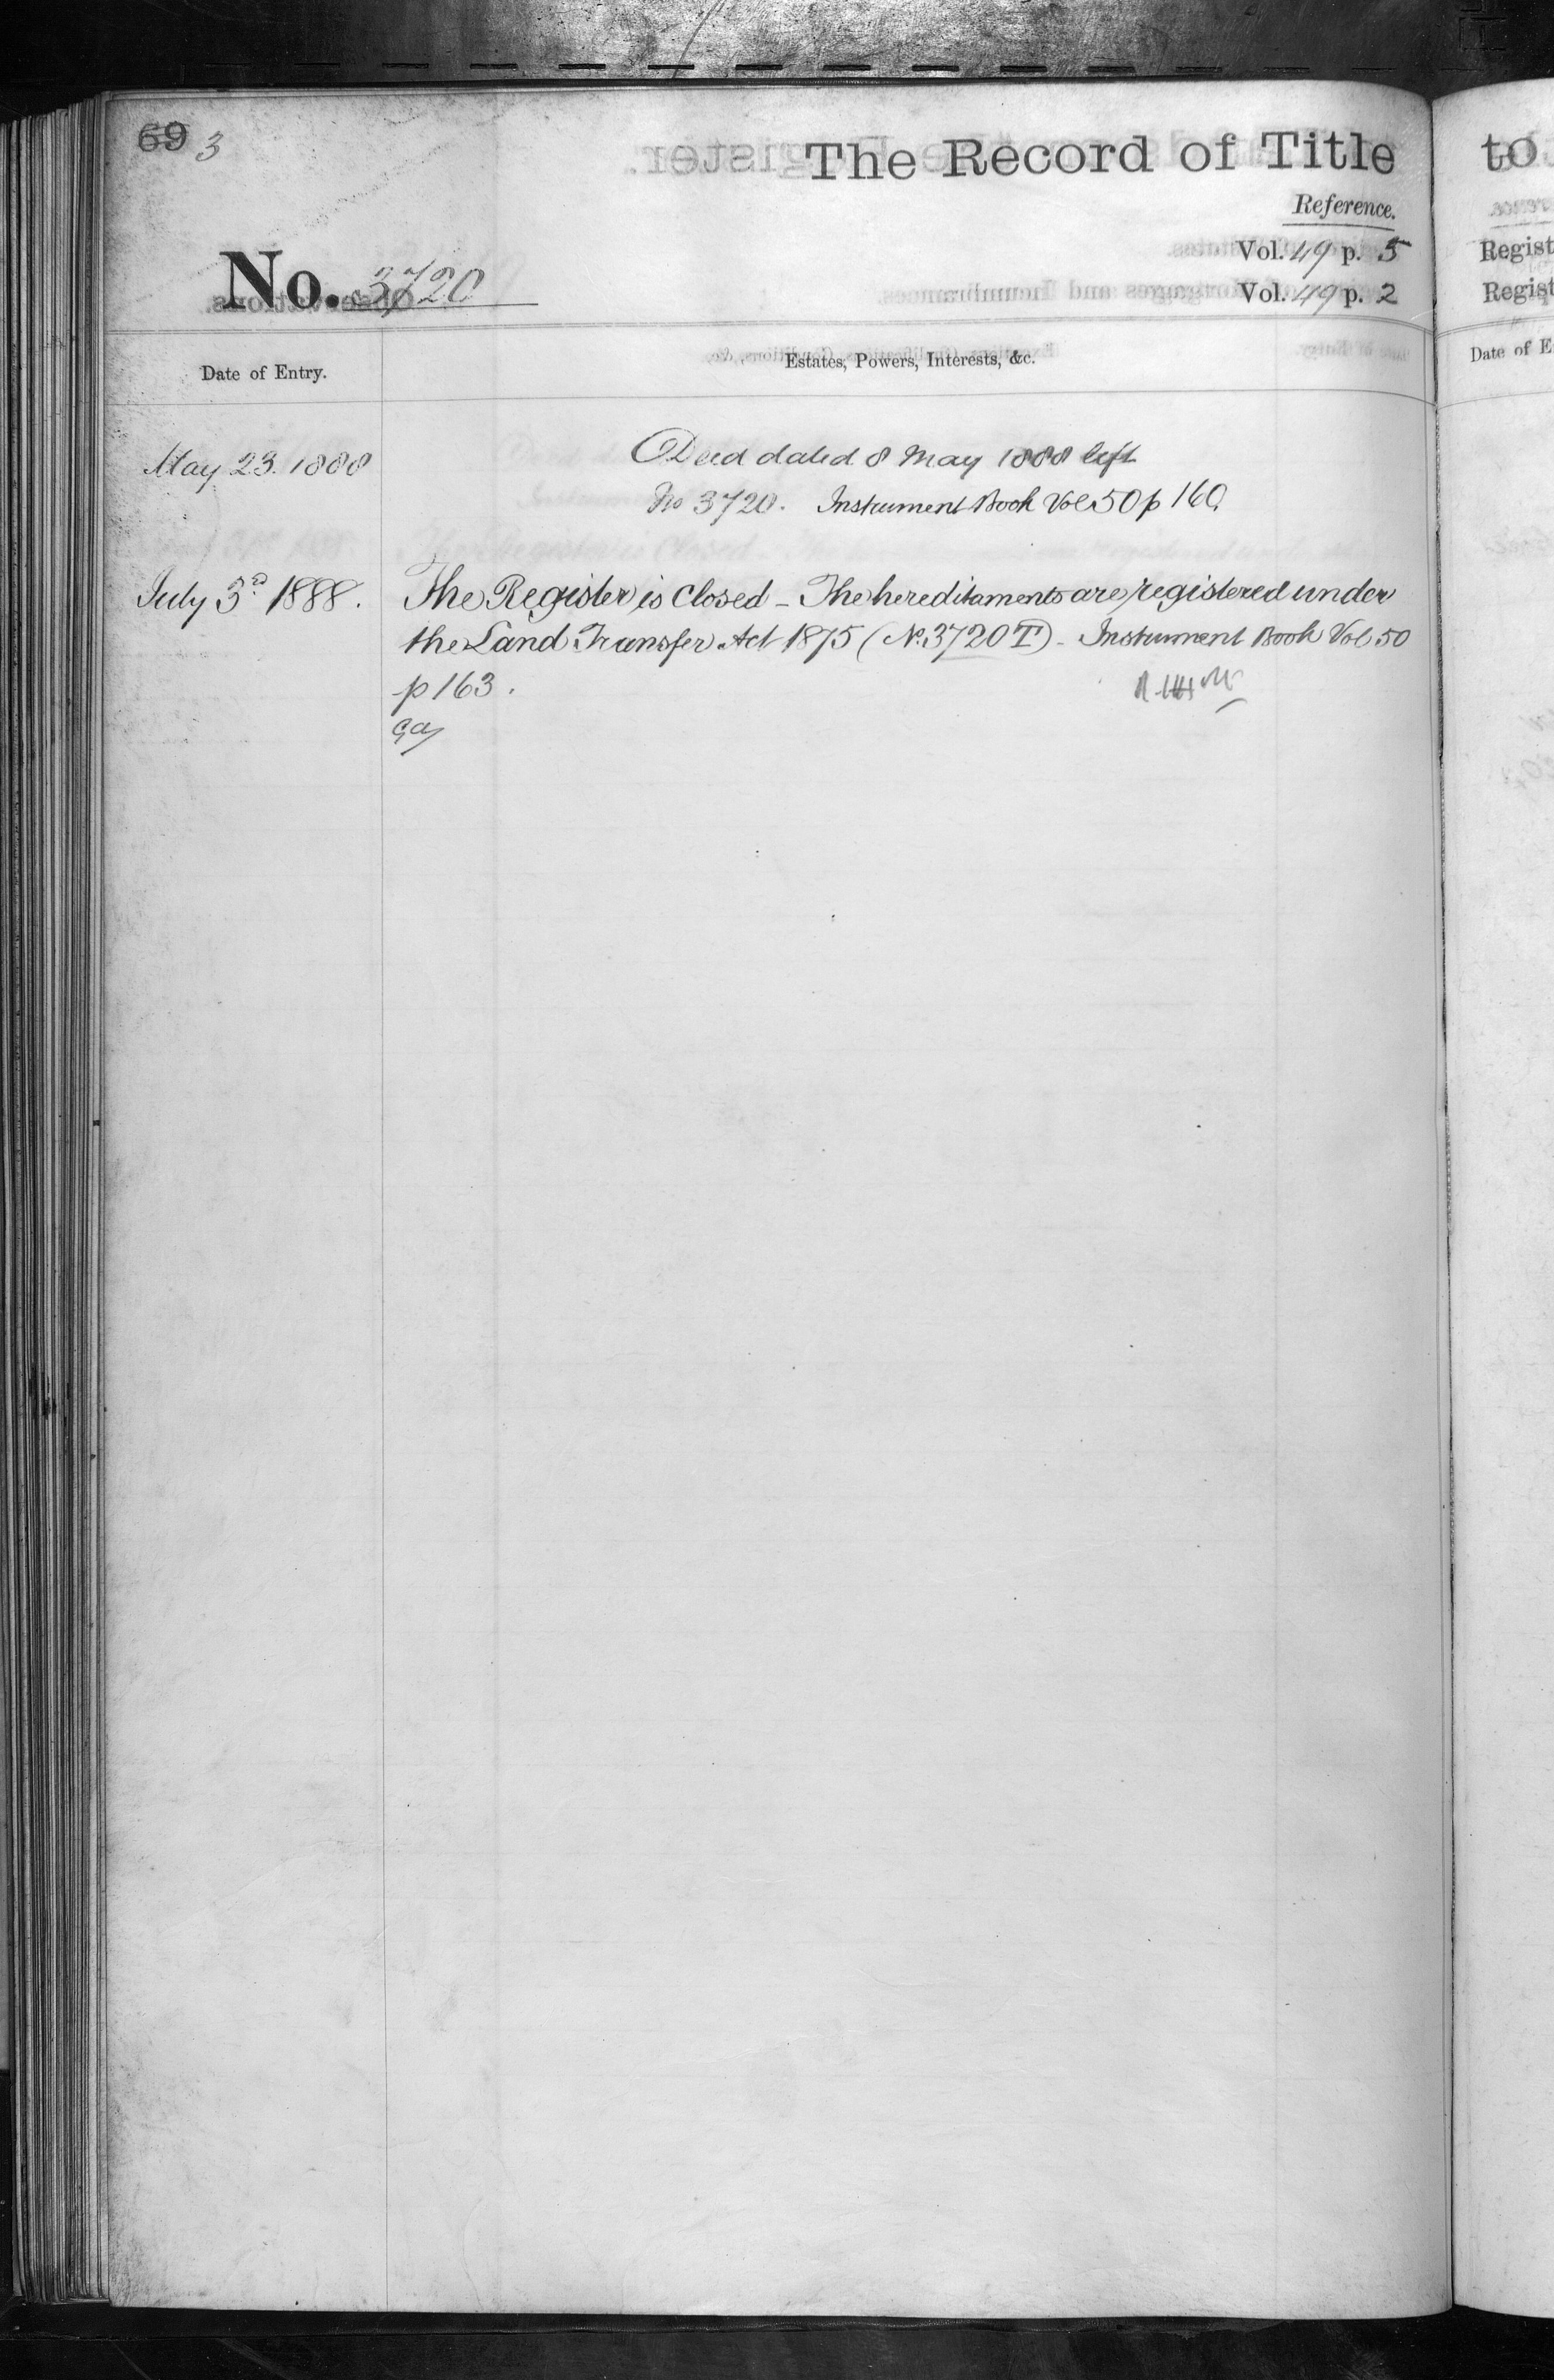 69 3
The Record of Title
Reference.
Vol. 49 p. 5
No. 3720
Vol. 49 p. 2
Date of Entry.
Estates, Powers, Interests, &c.
May 23. 1888
Deed dated 8 May 1888 left
No 3720. Instrument Book Vol 50 p 160
July 3rd 1888.
The Register is Closed - The hereditaments are registered under
the Land Transfer Act 1875 (No. 3720 T) - Instrument Book Vol 50
p 163.
to
Regist
Regist
Date of E